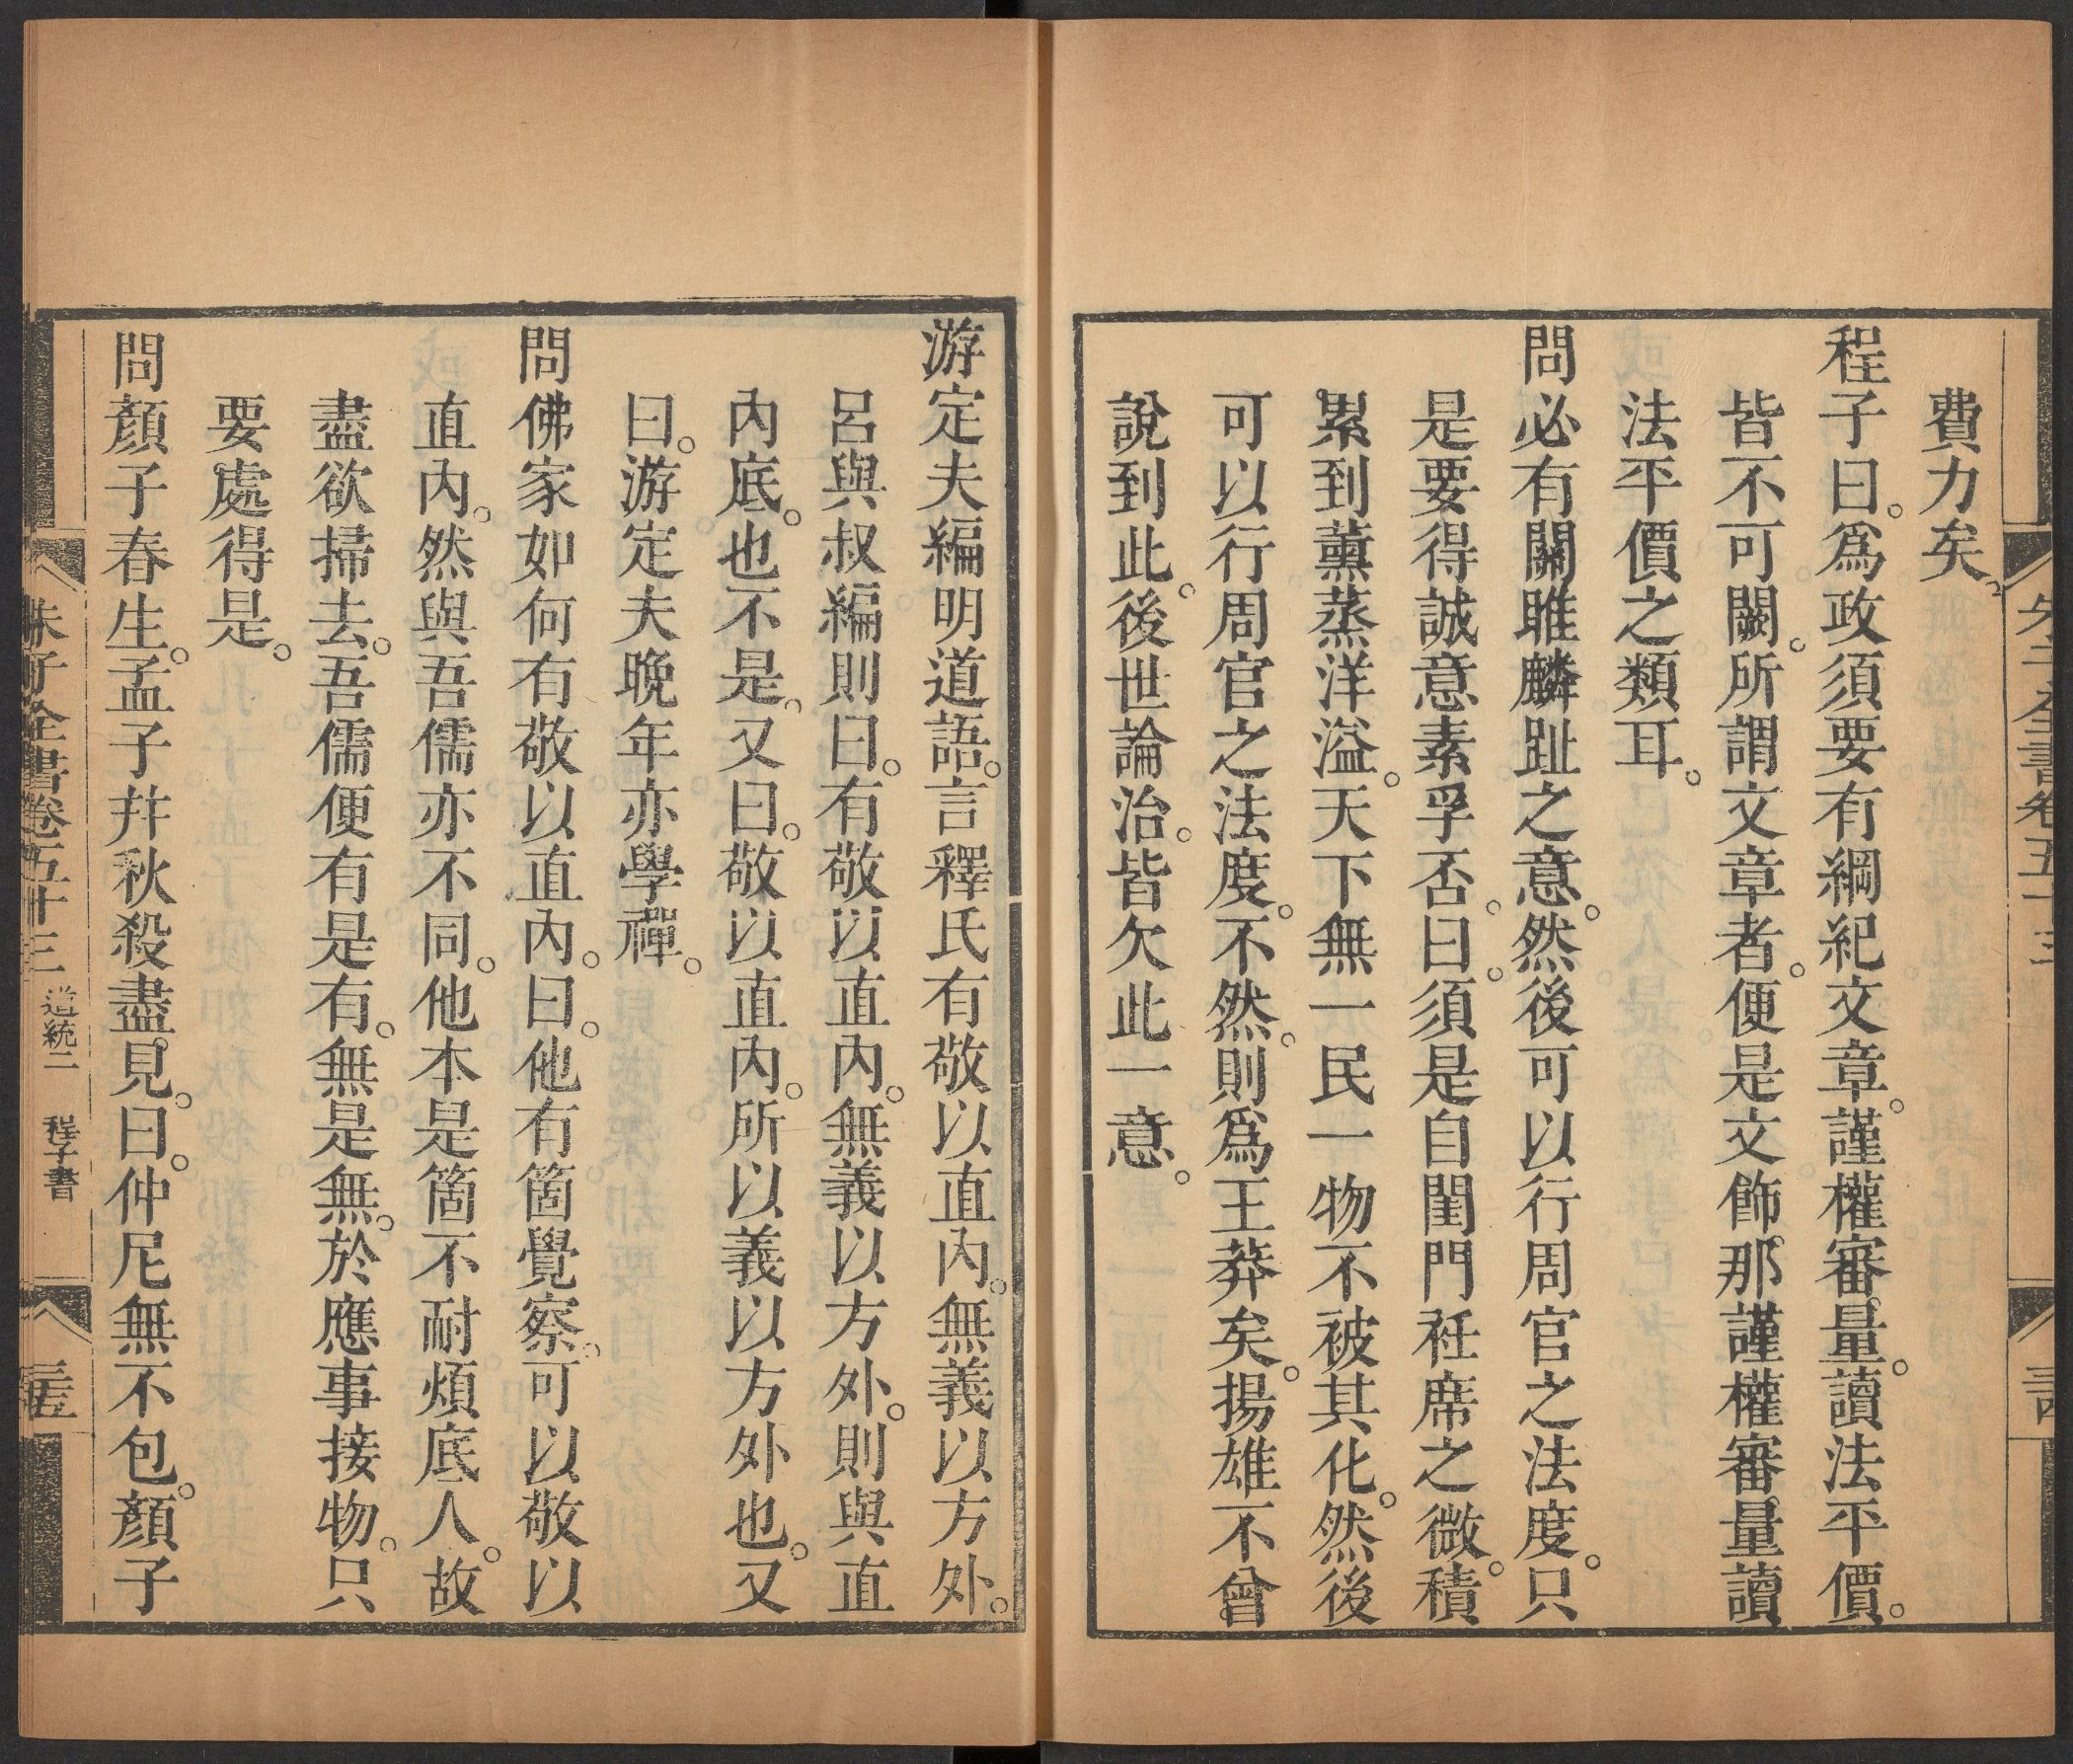 費力矣。
程子曰。爲政須要有綱紀文章。謹權審量。讀法平價。
皆不可闕。所謂文章者。便是文飾。那謹權審量讀
法平價之類耳。
問必有關雎麟趾之意。然後可以行周官之法度。只
是要得誠意素孚否。曰。須是自閨門衽席之微。積
累到薰蒸洋溢。天下無一民一物不被其化。然後
可以行周官之法度。不然。則爲王莽矣。揚雄不曾
說到此。後世論治。皆欠此一意。
游定夫編明道語。言釋氏有敬以直內。無義以方外。
呂與叔編則曰。有敬以直內。無義以方外。則與直
內底。也不是。又曰。敬以直內。所以義以方外也。又
曰。游定夫晚年亦學禪。
問佛家如何有敬以直內。曰。他有箇覺察。可以敬以
直內。然與吾儒亦不同。他本是箇不耐煩底人。故
盡欲掃去。吾儒便有是有。無是無。於應事接物。只
要處得是。
問顏子春生。孟子幷秋殺盡見。曰。仲尼無不包。顏子
朱子全書卷五十三 道統二 程子書